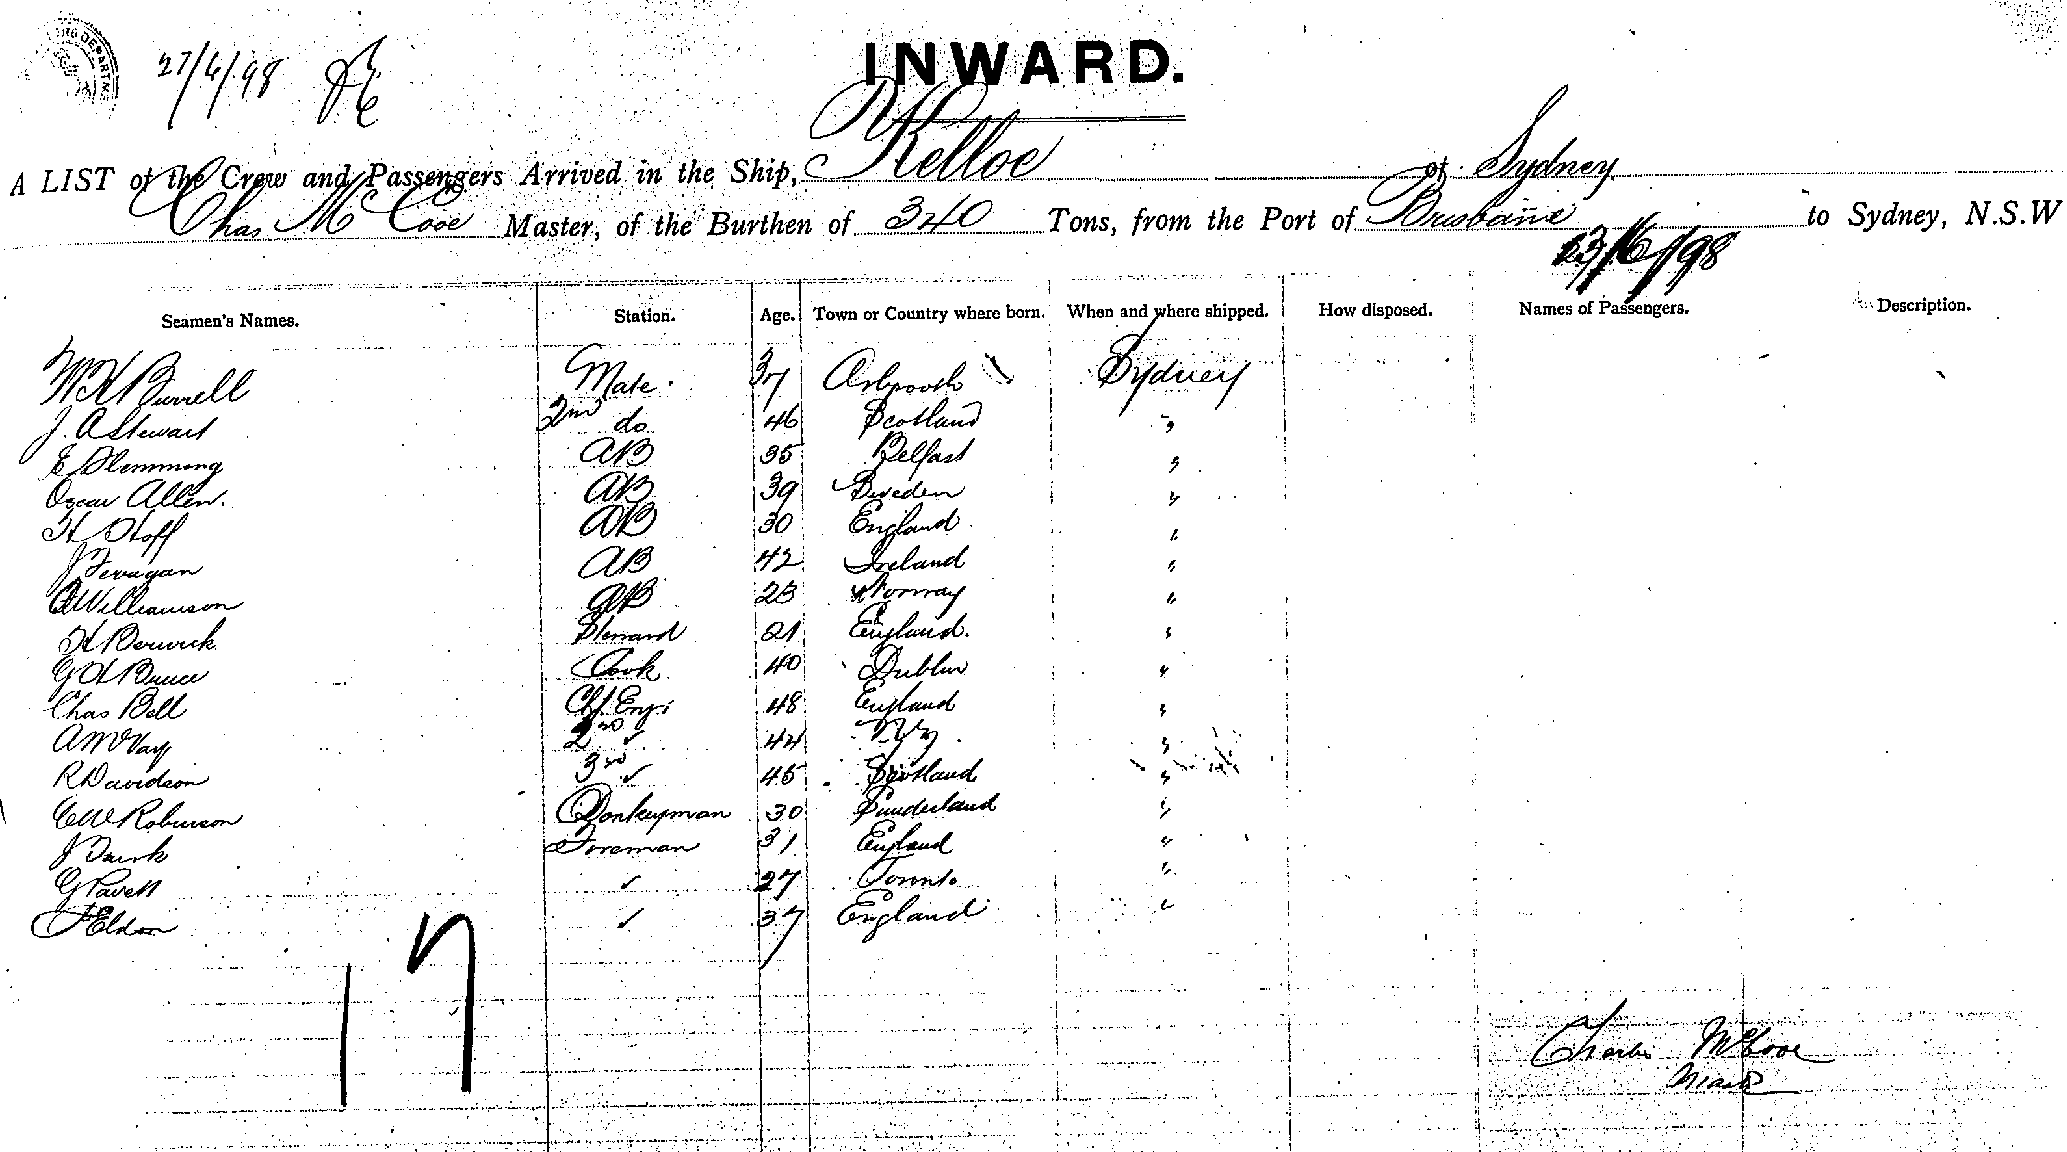 27/6/98
INWARD.
A LIST of the Crew and Passengers Arrived in the Ship, Kelloe of Sydney
Chas McCooe Master, of the Burthen of 340 Tons, from the Port of Brisbane to Sydney, N.S.W
23/6/98
Seamen's Names. Station. Age. Town or Country where born. When and where shipped. How disposed. Names of Passengers. Description.
W H Burrell Mate 37 Arbroath Sydney
J. A Stewart 2nd do 46 Scotland "
E Flemming AB 35 Belfast "
Oscar Allen. AB 39 Sweden "
H Hoff AB 30 England "
AB 42 Ireland "
Williamson AB 23 Norway "
H Berwick Steward 21 England. "
G H Bruce Cook 40 Dublin "
Chas Bell Chf Engr 48 England "
A McVay 2nd ✓ 44 N.Z. "
R Davidson 3rd ✓ 45 Scotland "
C W Robinson Donkeyman 30 Sunderland "
J Foreman 31 England "
G Pavett ✓ 27 Toronto "
Eldon ✓ 37 England "
17
Charles McCooe
Master